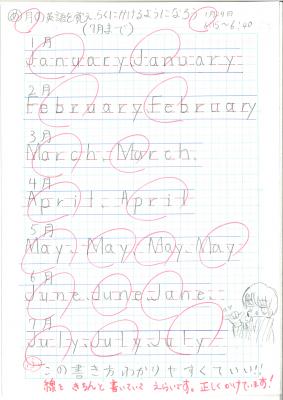 め 月の英語を覚え、らくにかけるようになろう 1月29日
(7月まで) 6:15〜6:40
1月
January January.
2月
February February
3月
March. March.
4月
April. April
5月
May. May May. May
6月
June. June. June.
7月
July. July. July
この書き方わかりやすくていい!!
線を きちんと書いていて えらいです。正しくかけています!